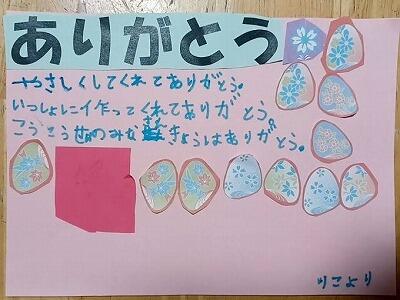 ありがとう
やさしくしてくれてありがとう。
いっしょにイ作ってくれてありがとう。
こうこうせいのみなさんきょうはありがとう。
りこより